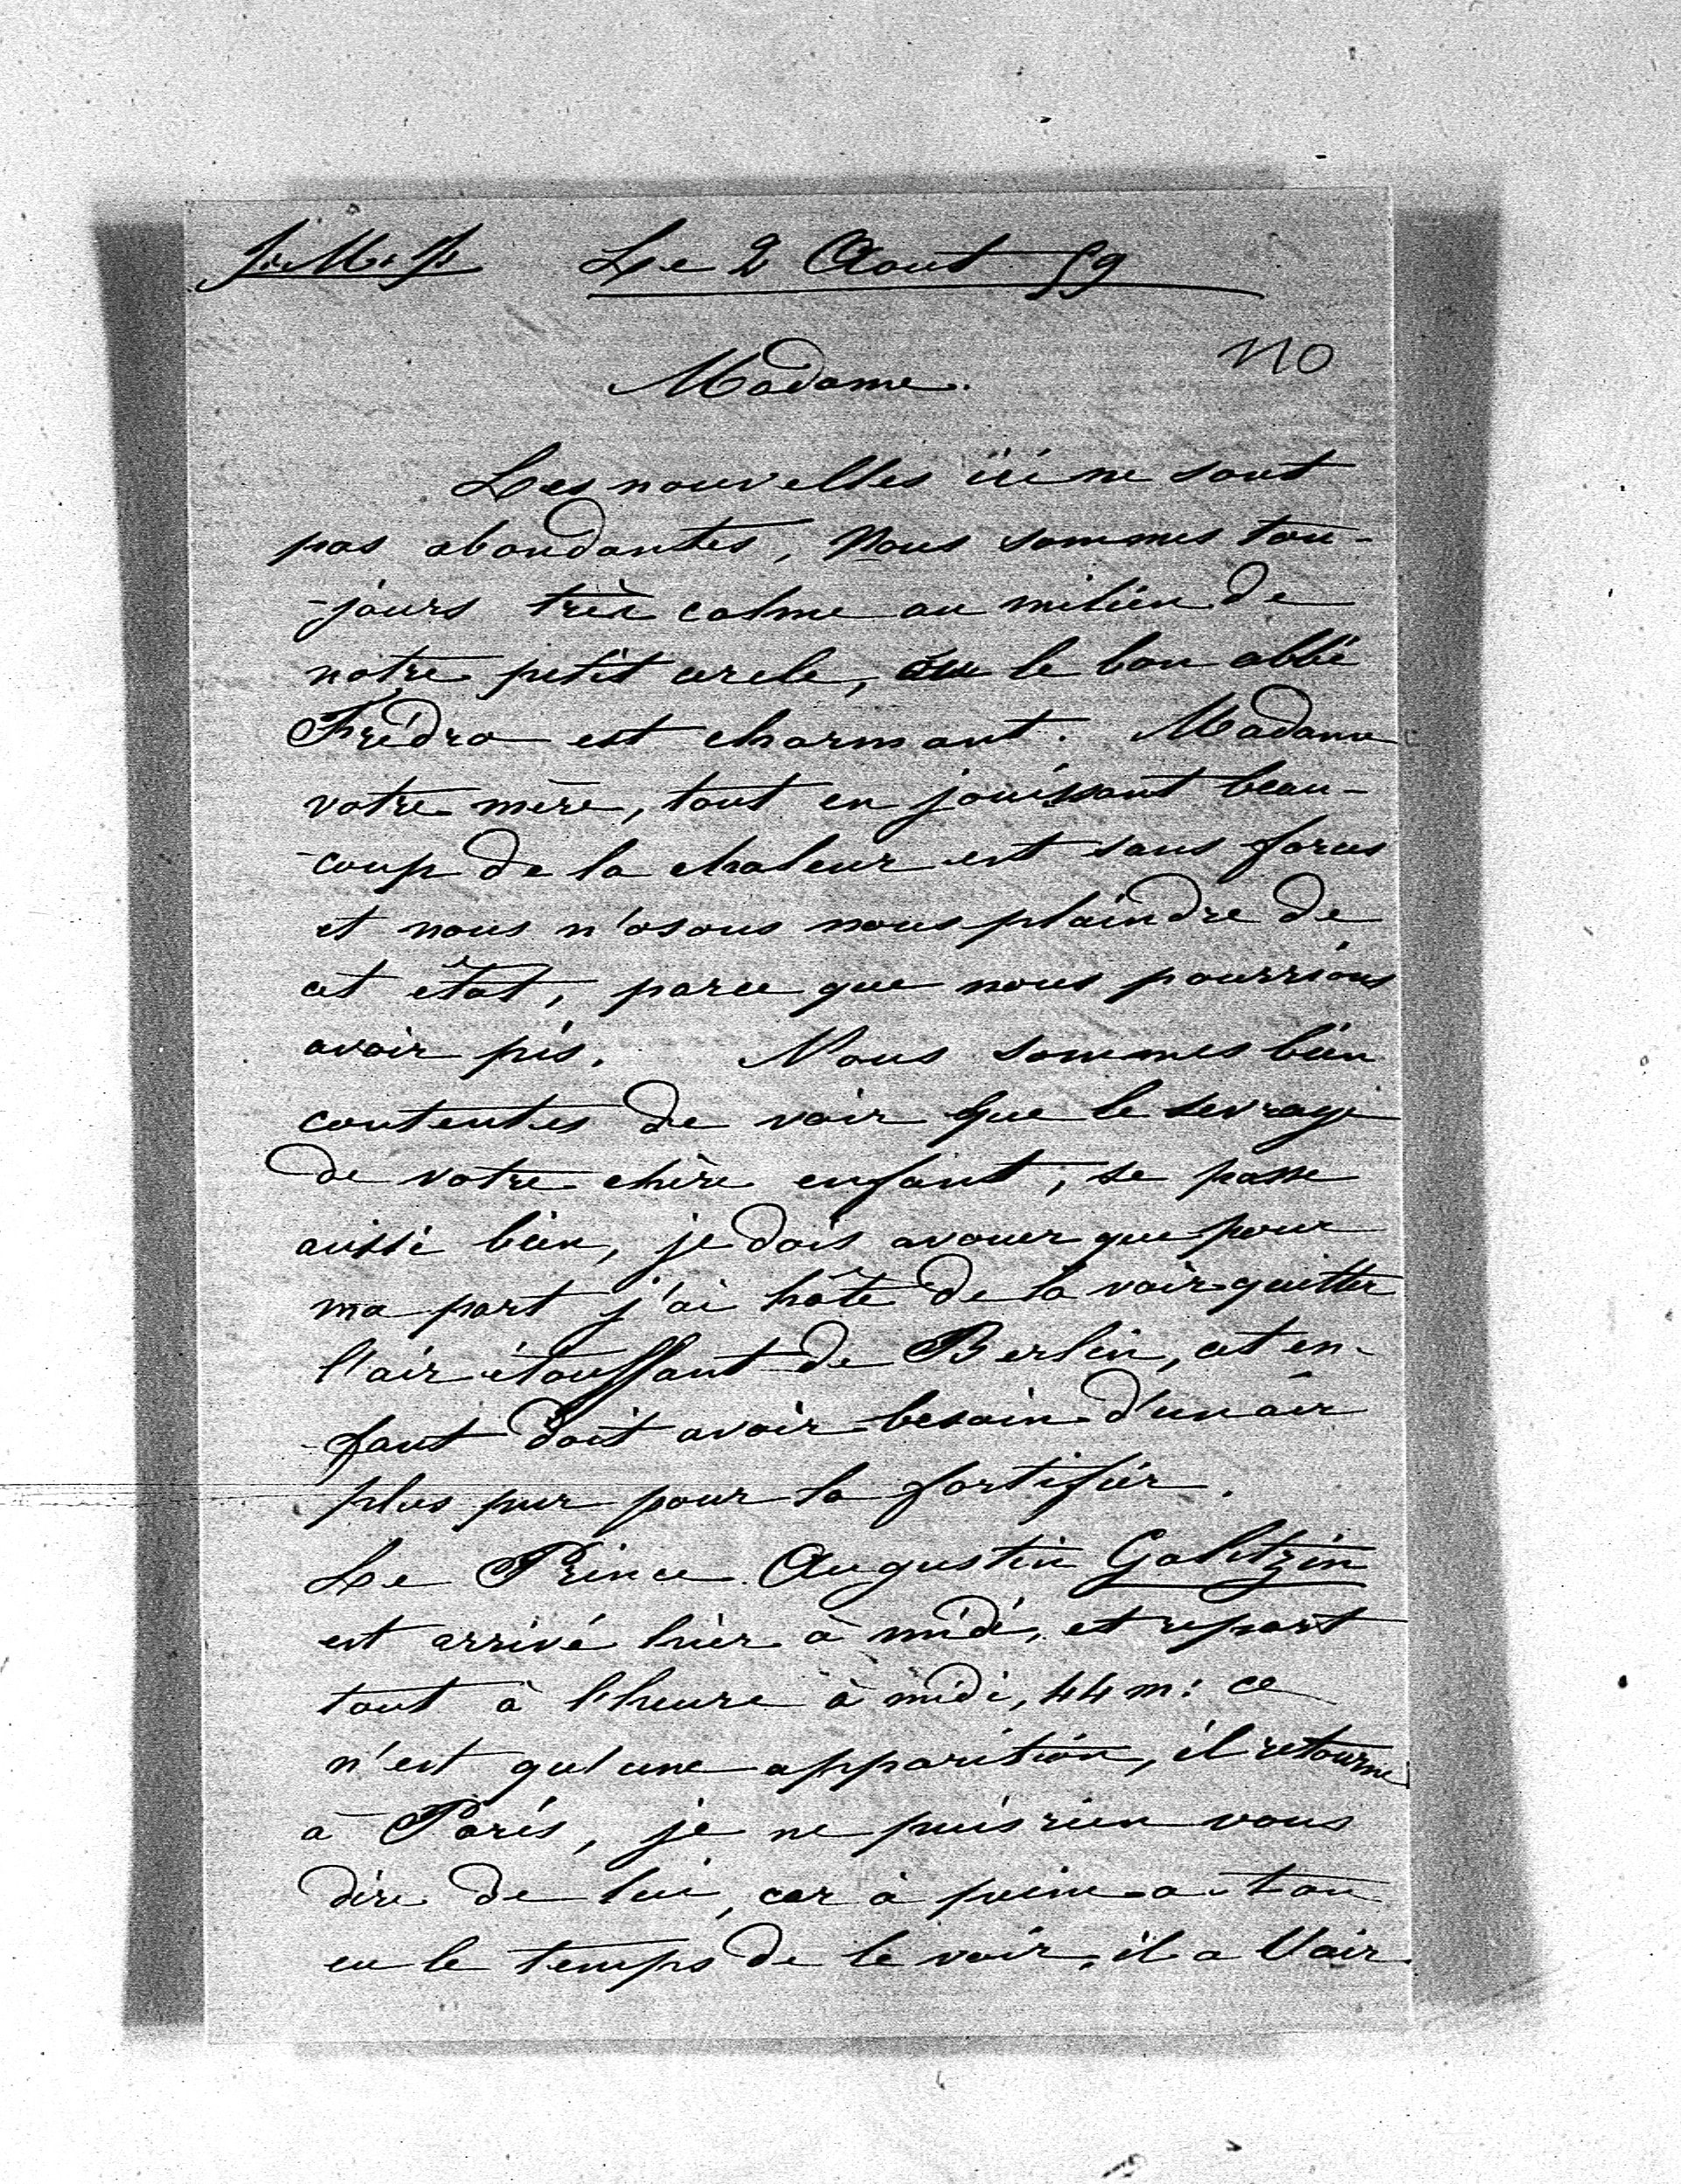 J. M. J. Le 2 Aout 59
110
Madame.
Les nouvelles ici ne sont
pas abondantes, nous sommes tou-
-jours très calme au milieu de
notre petit cercle, où le bon abbé
Frédro est charmant. Madame
votre mère, tout en jouissant beau-
-coup de la chaleur est sans forces
et nous n'osons nous plaindre de
cet état, parce que nous pourrions
avoir pis. Nous sommes bien
contentes de voir que le sevrage
de votre chère enfant, se passe
aussi bien, je dois avouer que pour
ma part j'ai hâte de la voir quitter
l'air étouffant de Berlin, cet en-
-fant doit avoir besoin d'un air
plus pur pour la fortifier.
Le Prince Augustin Galitzin
est arrivé hier à midi, et repart
tout à l'heure à midi, 44 m: ce
n'est qu'une apparition, il retourne
à Paris, je ne puis rien vous
dire de lui, car à peine a-t-on
eu le temps de le voir, il a l'air